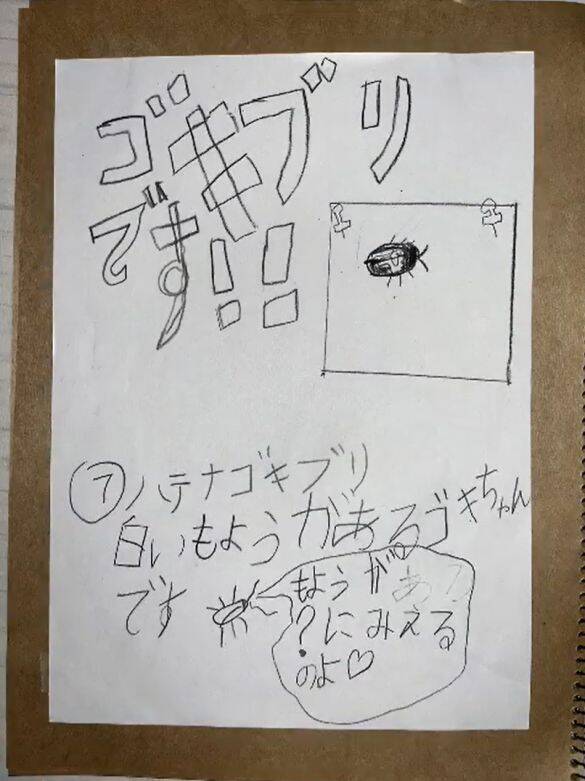 ゴキブリ
です!!
⑦ハテナゴキブリ
白いもようがあるゴキちゃん
です
もようがあ?
?にみえる
のよ♡